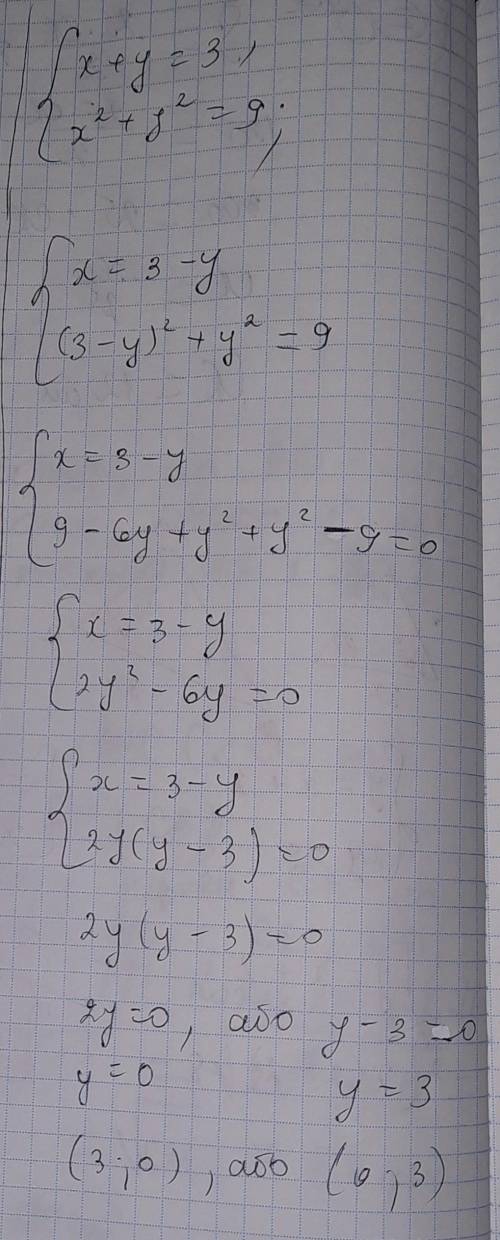 x + y = 3,
x² + y² = 9;
x = 3 - y
(3 - y)² + y² = 9
x = 3 - y
9 - 6y + y² + y² - 9 = 0
x = 3 - y
2y² - 6y = 0
x = 3 - y
2y(y - 3) = 0
2y(y - 3) = 0
2y = 0, або y - 3 = 0
y = 0 y = 3
(3; 0), або (0; 3)